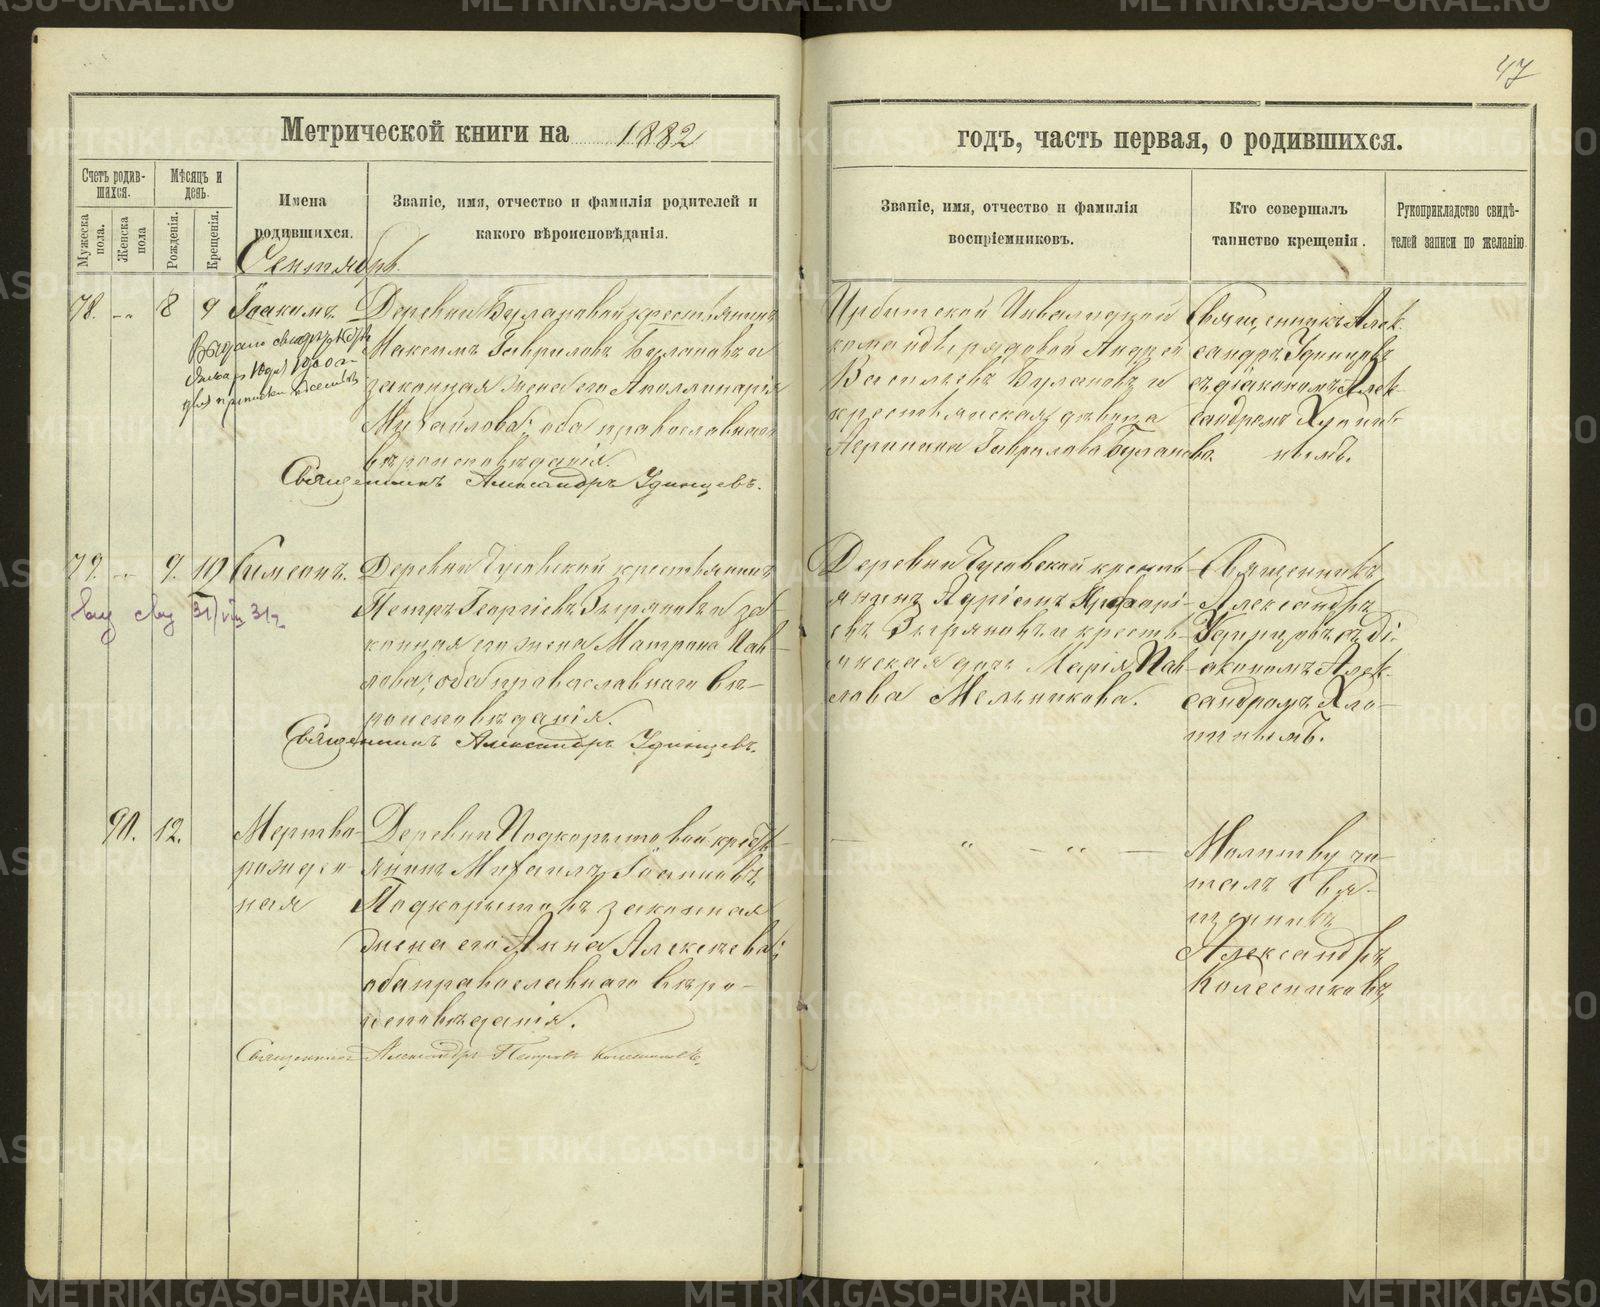 47
Метрической книги на 1882
годъ, часть первая, о родившихся.
Счетъ родив-
шихся.
Мѣсяцъ и
день.
Мужеска
пола.
Женска
пола
Рожденія.
Крещенія.
Имена
родившихся.
Званіе, имя, отчество и фамилія родителей и
какого вѣроисповѣданія.
Званіе, имя, отчество и фамилія
воспріемниковъ.
Кто совершалъ
таинство крещенія.
Рукоприкладство свидѣ-
телей записи по желанію.
Сентябрь.
78. 8 9 Іоакимъ
Деревни Булановой крестьянинъ
Максимъ Гавриловъ Булановъ и
законная жена его Аполлинарія
Михайлова; оба православнаго
вѣроисповѣданія.
Священникъ Александръ Удинцевъ.
Ирбитской Инвалидной
команды рядовой Андрей
Васильевъ Булановъ и
крестьянская дѣвица
Агрипина Гаврилова Буланова.
Священникъ Алек-
сандръ Удинцевъ
съ діакономъ Алек-
сандромъ
79. 9. 10 Симеонъ.
31/VIII 31
Деревни Чусовской крестьянинъ
Петръ Георгіевъ Зыряновъ и за-
конная его жена Матрона Пав-
лова; оба православнаго вѣ-
роисповѣданія.
Священникъ Александръ Удинцевъ.
Деревни Чусовской кресть-
янинъ Адріанъ
Зыряновъ и кресть-
янская дочь Марія Пав-
лова Мельникова.
Священникъ
Александръ
Удинцовъ съ ді-
акономъ Алек-
сандромъ Хло-
тинымъ.
90. 12.
Мертво-
рожден-
ная
Деревни Подкорытовой крест-
янинъ Михаилъ Іоанновъ
Подкорытовъ законная
жена его Анна Алексѣева;
оба православнаго вѣро-
исповѣданія.
Священникъ Александръ Петровъ Колесниковъ.
Молитву чи-
талъ Свя-
щенникъ
Александръ
Колесниковъ
METRIKI.GASO-URAL.RU